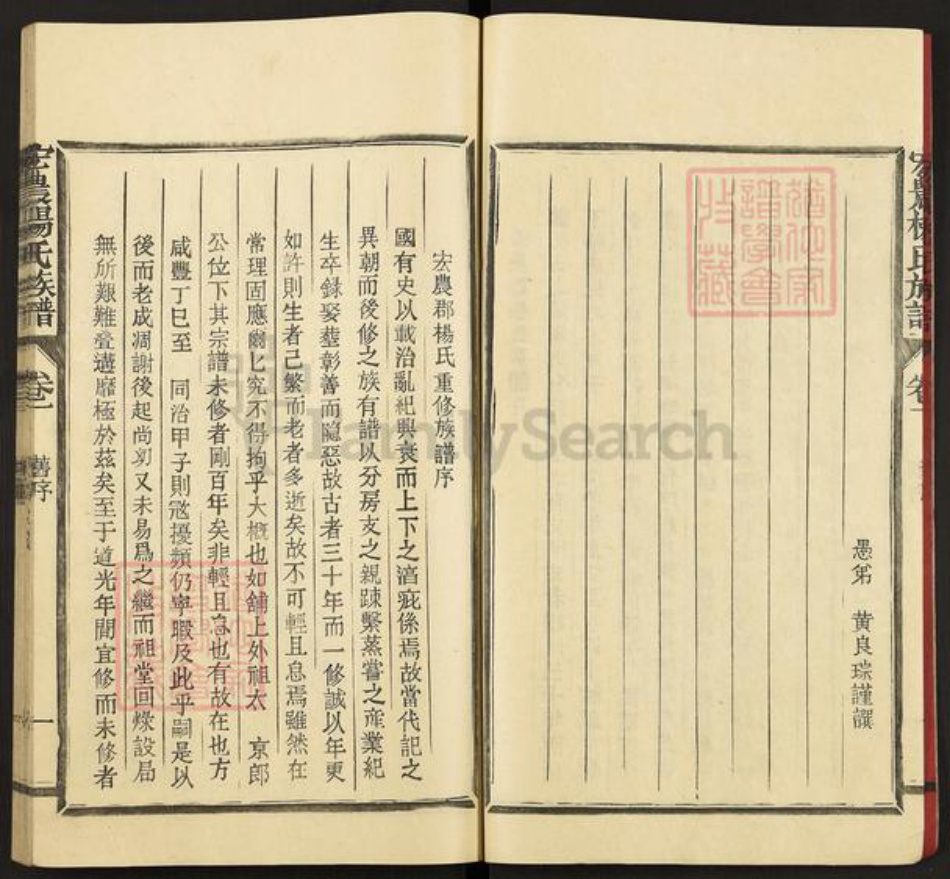 愚弟　黄良琮謹譔
宏農楊氏族譜 卷一
宏農郡楊氏重修族譜序
國有史以載治亂紀興衰而上下之淯疵係焉故當代記之
異朝而後修之族有譜以分房支之親踈繫蒸嘗之産業紀
生卒録娶塟彰善而隠惡故古者三十年而一修誠以年更
如許則生者已繁而老者多逝矣故不可輕且怠焉雖然在
常理固應爾匕究不得拘乎大概也如舖上外祖太　京郎
公位下其宗譜未修者剛百年矣非輕且怠也有故在也方
咸豐丁巳至　同治甲子則㓂擾頻仍寧暇及此乎嗣是以
後而老成凋謝後起尚㓜又未易爲之繼而祖堂回燬設局
無所艱難叠遘靡極於茲矣至于道光年間宜修而未修者
宏農楊氏族譜 卷一 舊序 一
FamilySearch